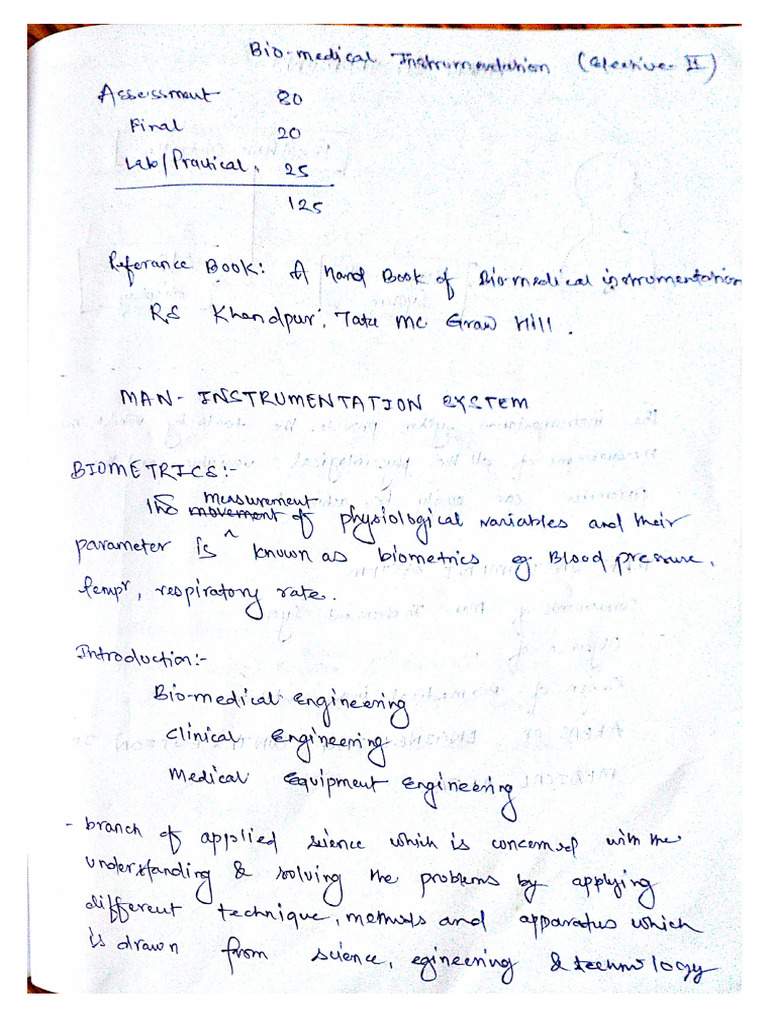 Bio-medical Instrumentation (Elective-II)
Assessment 80
Final 20
Lab/Practical. 25
125
Referance Book: A Hand Book of Bio-medical instrumentation
R.S Khandpur, Tata Mc Graw Hill.
MAN-INSTRUMENTATION SYSTEM
BIOMETRICS:-
measurement
The movement of physiological variables and their
parameter is known as biometrics eg. Blood pressure,
tempr, respiratory rate.
Introduction:-
Bio-medical engineering
Clinical Engineering
Medical Equipment Engineering
- branch of applied science which is concerned with the
understanding & solving the problems by applying
different technique, methods and apparatus which
is drawn from science, egineering & technology